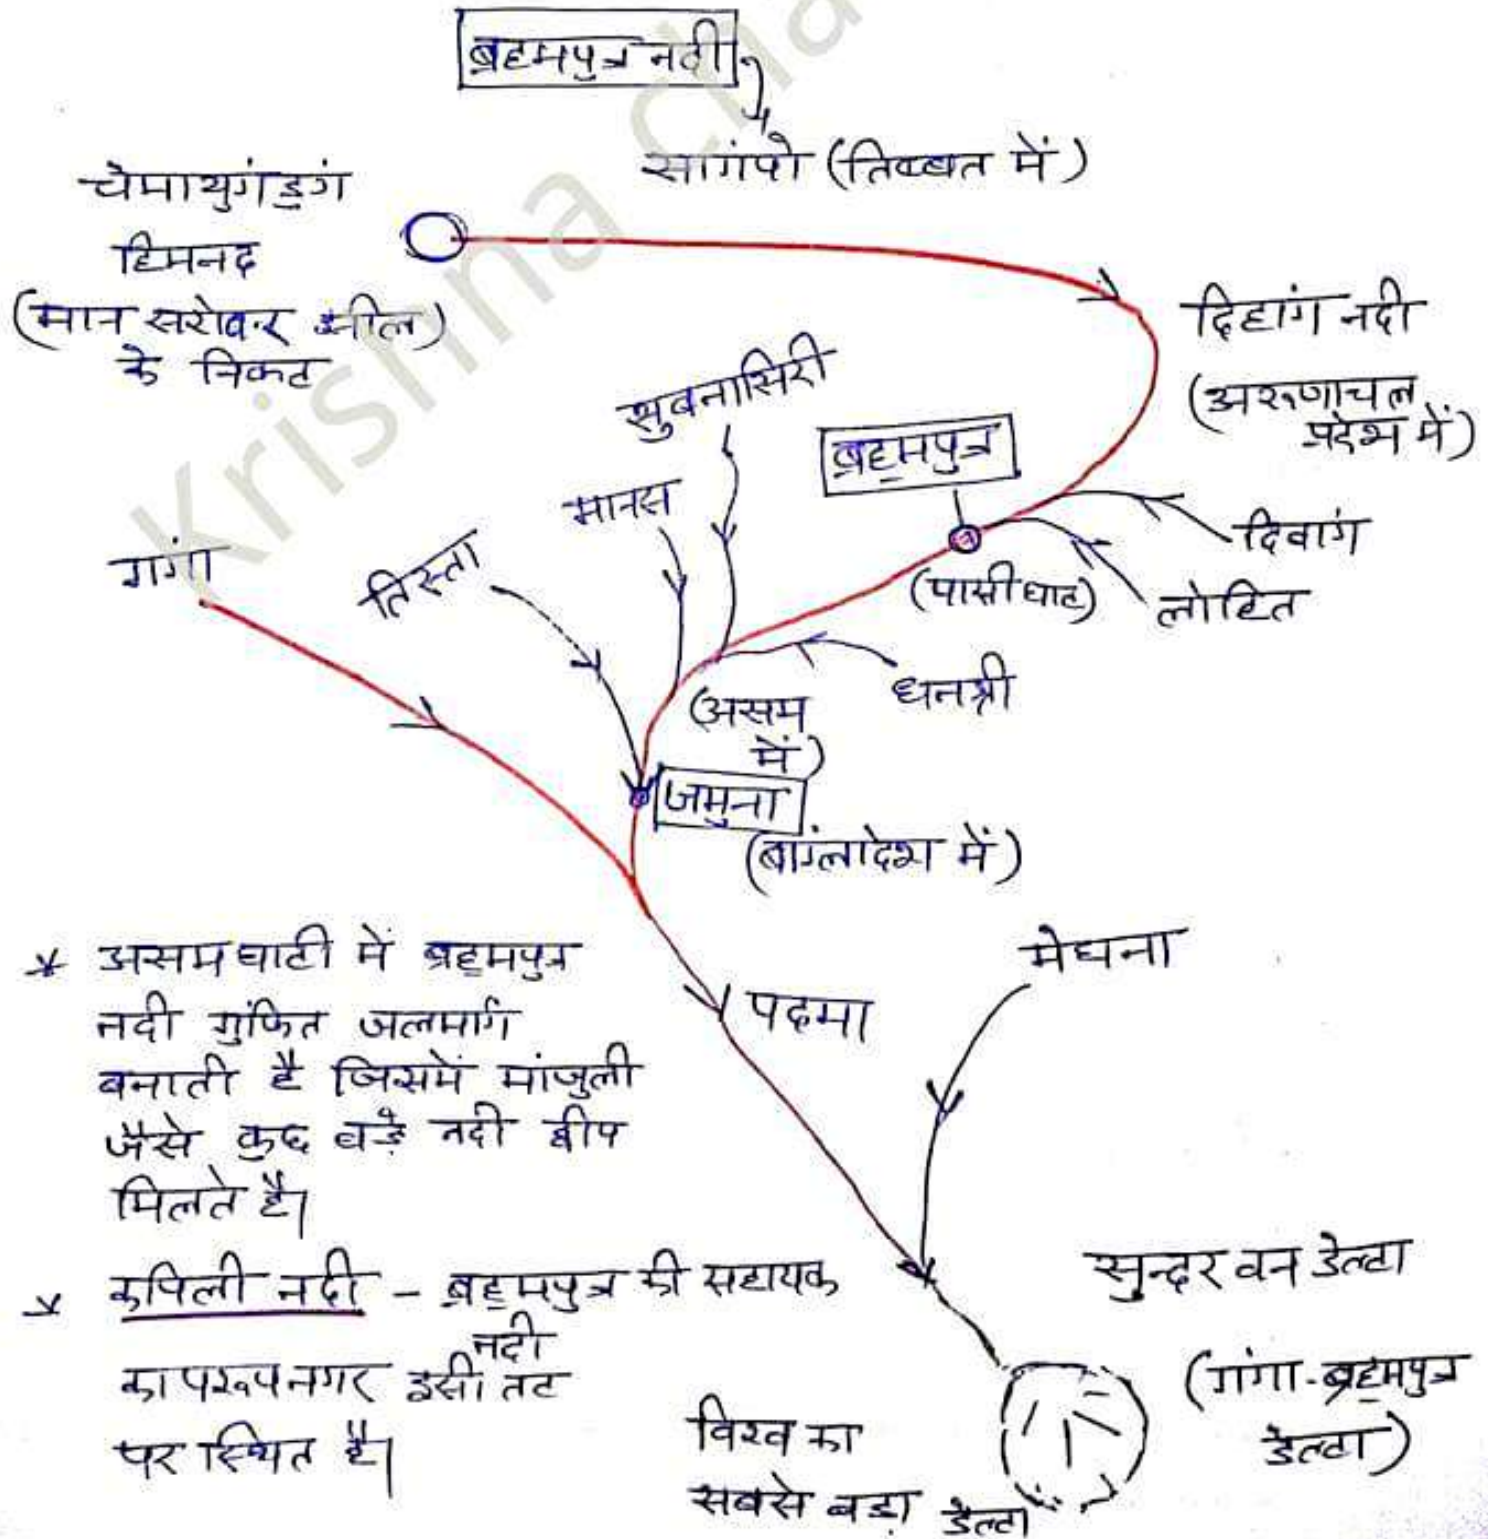 ब्रह्मपुत्र नदी
सांगपो (तिब्बत में)
चेमायुगंडुगं
हिमनद
(मान सरोवर झील)
के निकट
दिहांग नदी
(अरुणाचल
प्रदेश में)
सुबनासिरी
ब्रह्मपुत्र
मानस
दिवांग
गगा
तिस्ता
(पासीघाट)
लोहित
धनश्री
(असम
में)
जमुना
(बांग्लादेश में)
* असम घाटी में ब्रह्मपुत्र
नदी गुंफित जलमार्ग
बनाती है जिसमें मांजुली
जैसे कुछ बड़े नदी द्वीप
मिलते है।
मेघना
पदमा
* कपिली नदी - ब्रह्मपुत्र की सहायक
नदी
कापरूपनगर इसी तट
पर स्थित है।
सुन्दर वन डेल्टा
(गंगा-ब्रह्मपुत्र
डेल्टा)
विश्व का
सबसे बड़ा डेल्टा